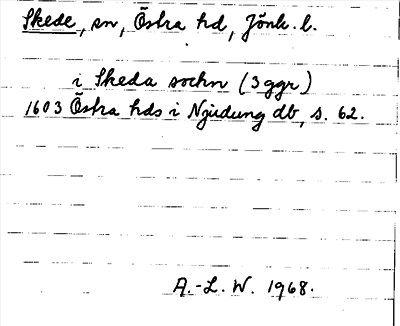 Skede, sn, Östra hd, Jönk. l.
i Skeda sochn (3 ggr)
1603 Östra hds i Njudung db, s. 62.
A.-L. W. 1968.